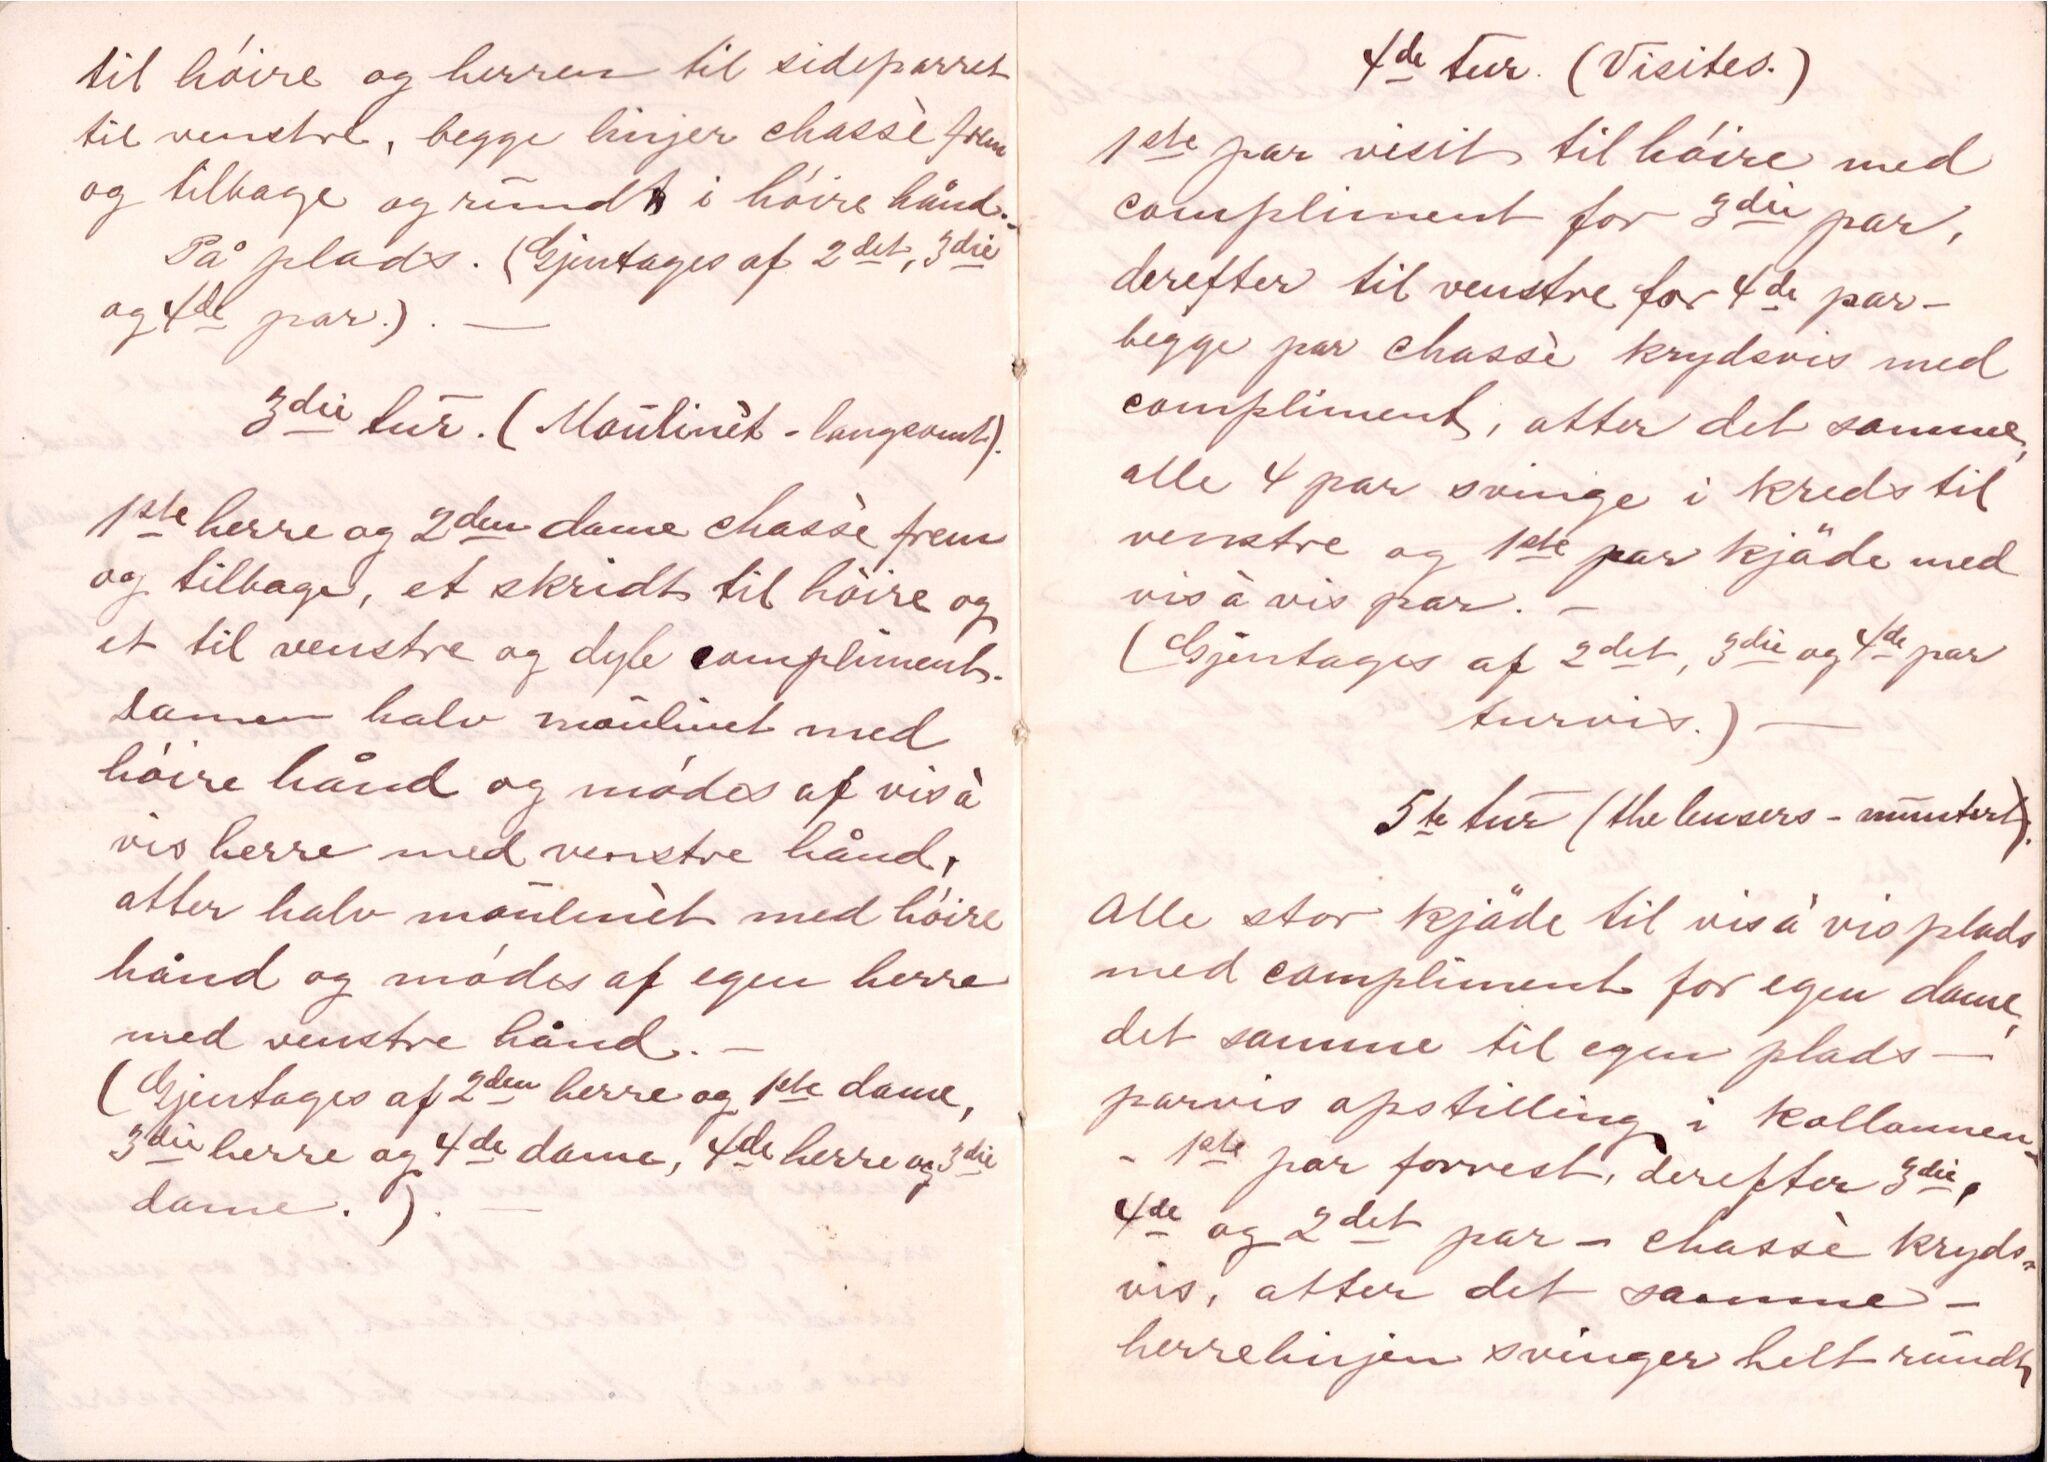 til höire og herren til sideparret
til venstre, begge linjer chassè frem
og tilbage og rundt i höire hånd.-
På plads. (Gjentages af 2det, 3die
og 4de par.). —
3die tur. (Moulinèt - langsomt).
1ste herre og 2den dame chassè frem
og tilbage, et skridt til höire og
et til venstre og dyb compliment.
samen halv moulinet med
höire hånd og mödes af vis à
vis herre med venstre hånd,
atter halv moulinèt med höire
hånd og mödes af egen herre
med venstre hånd. —
(Gjentages af 2den herre og 1ste dame,
3die herre og 4de dame, 4de herre og 3die
dame.). —
4de tur. (Visites.)
1ste par visit til höire med
compliment for 3die par,
derefter til venstre for 4de par -
begge par chassè krydsvis med
compliment, atter det samme,
alle 4 par svinge i kreds til
venstre og 1ste par kjäde med
vis à vis par. —
(Gjentages af 2det, 3die og 4de par
turvis.) —
5te tur (the lensers - muntert).
Alle stor kjäde til vis à vis plads
med compliment for egen dame,
det samme til egen plads —
parvis opstilling i kollonnen -
- 1ste par forrest, derefter 3die,
4de og 2det par - chassè kryds-
vis, atter det samme -
herrelinjen svinger helt rundt